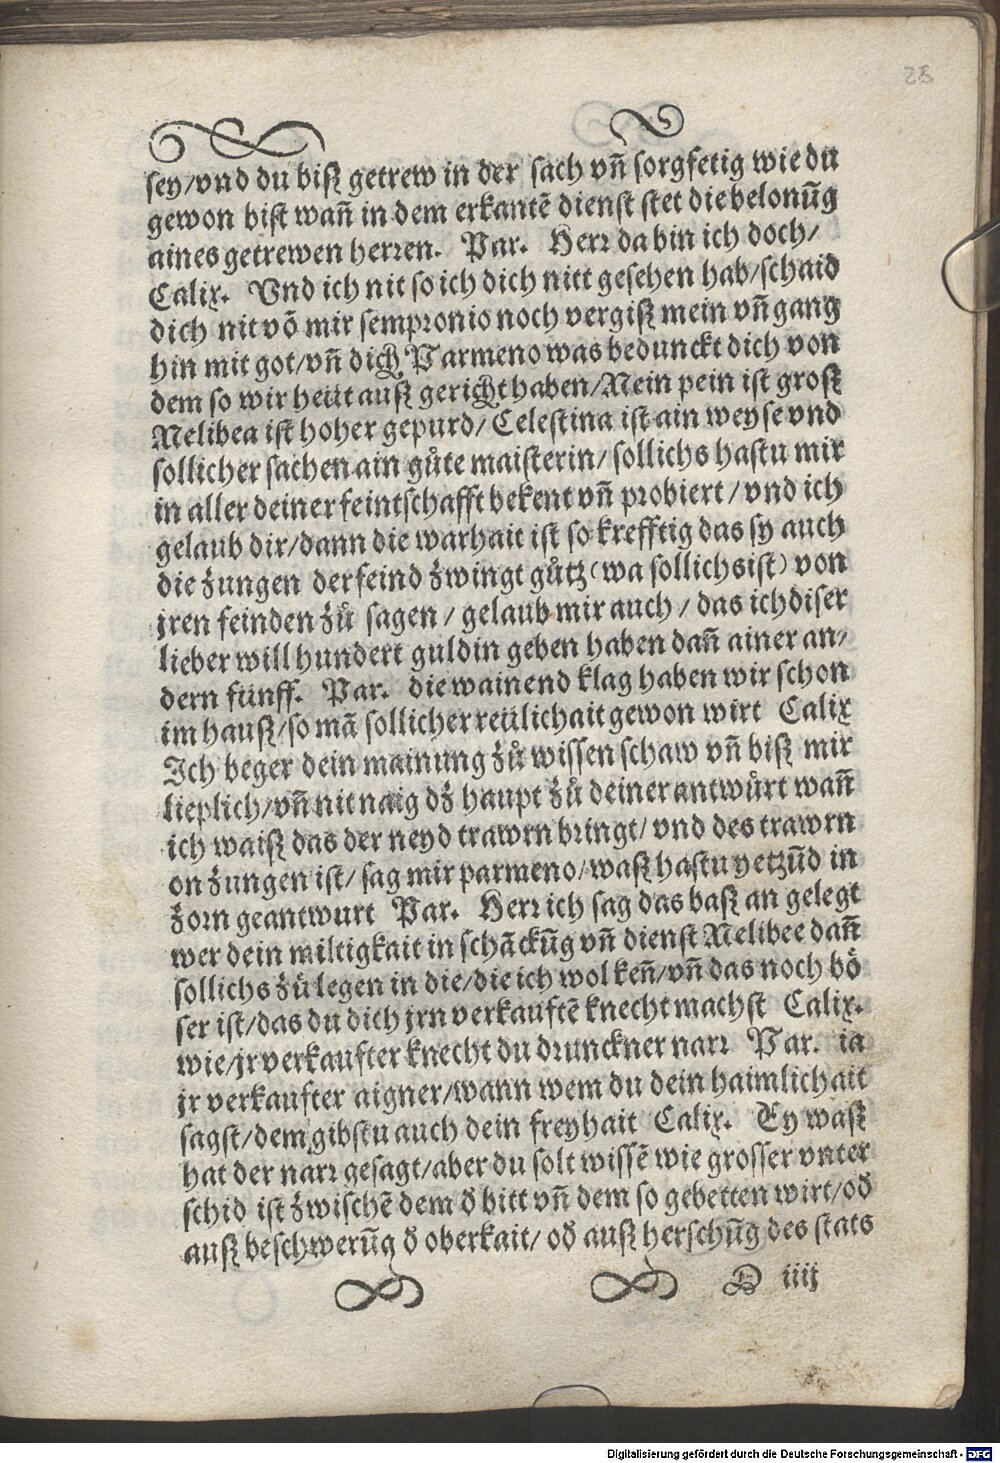 28
sey/vnd du biß getrew in der sach vñ sorgfetig wie du
gewon bist wañ in dem erkantē dienst stet die belonūg
aines getrewen herren. Par. Herr da bin ich doch/
Calix. Vnd ich nit so ich dich nitt gesehen hab/schaid
dich nit võ mir sempronio noch vergiß mein vñ gang
hin mit got/vñ dich Parmeno was bedunckt dich von
dem so wir heüt auß gericht haben/Mein pein ist groß
Melibea ist hoher gepurd/Celestina ist ain weyse vnd
sollicher sachen ain gůte maisterin/sollichs hastu mir
in aller deiner feintschafft bekent vñ probiert/vnd ich
gelaub dir/dann die warhait ist so krefftig das sy auch
die zungen der feind zwingt gůtz(wa sollichs ist) von
jren feinden zů sagen/gelaub mir auch/das ich diser
lieber will hundert guldin geben haben dañ ainer an/
dern fünff. Par. die wainend klag haben wir schon
im hauß/so mā sollicher reülichait gewon wirt Calix
Ich beger dein mainung zů wissen schaw vñ biß mir
lieplich/vñ nit naig dz haupt zů deiner antwůrt wañ
ich waiß das der neyd trawrn bringt/vnd des trawrn
on zungen ist/sag mir parmeno/waß hastu yetzūd in
zorn geantwurt Par. Herr ich sag das baß an gelegt
wer dein miltigkait in schāckūg vñ dienst Melibee dañ
sollichs zů legen in die/die ich wol keñ/vñ das noch bö
ser ist/das du dich jrn verkauftē knecht machst Calix.
wie/jr verkaufter knecht du drunckner narr Par. ia
jr verkaufter aigner/wann wem du dein haimlichait
sagst/dem gibstu auch dein freyhait Calix. Ey waß
hat der narr gesagt/aber du solt wissē wie grosser vnter
schid ist zwischē dem ð bitt vñ dem so gebetten wirt/oð
auß beschwerūg ð oberkait/oð auß herschūg des stats
D iiij
Digitalisierung gefördert durch die Deutsche Forschungsgemeinschaft - DFG